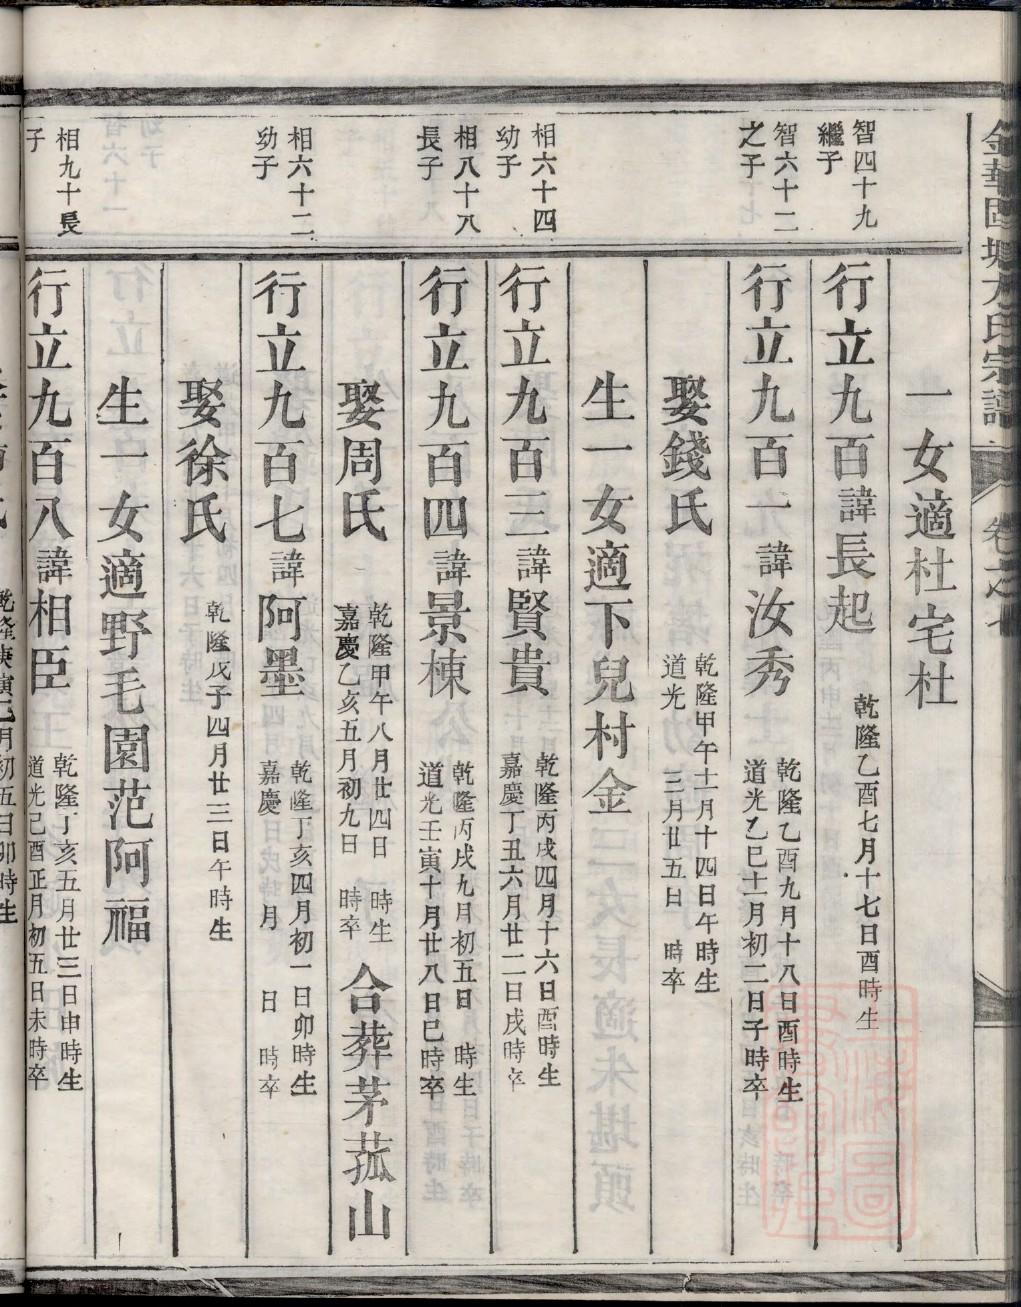 金華回塘方氏宗譜 卷之七
一女適杜宅杜
智四十九
繼子
行立九百諱長起
乾隆乙酉七月十七日酉時生
智六十二
之子
行立九百一諱汝秀
乾隆乙酉九月十八日酉時生
道光乙巳十一月初二日子時卒
娶錢氏
乾隆甲午十一月十四日午時生
道光 三月廿五日 時卒
生一女適下兒村金
相六十四
幼子
行立九百三諱賢貴
乾隆丙戌四月十六日酉時生
嘉慶丁丑六月廿二日戌時卒
相八十八
長子
行立九百四諱景棟
乾隆丙戌九月初五日 時生
道光壬寅十月廿八日巳時卒
娶周氏
乾隆甲午八月廿四日 時生
嘉慶乙亥五月初九日 時卒
合葬茅菰山
相六十二
幼子
行立九百七諱阿墨
乾隆丁亥四月初一日卯時生
嘉慶 月 日 時卒
娶徐氏
乾隆戊子四月廿三日午時生
生一女適野毛園范阿福
相九十長
子
行立九百八諱相臣
乾隆丁亥五月廿三日申時生
道光己酉正月初五日未時卒